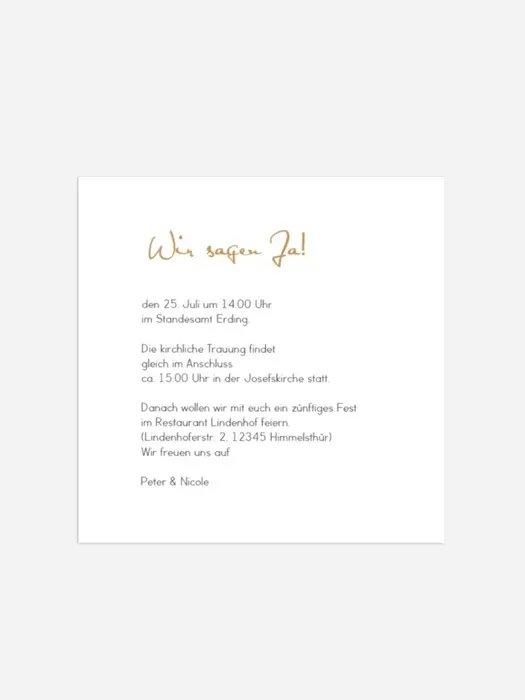 Wir sagen Ja!
den 25. Juli um 14:00 Uhr
im Standesamt Erding.
Die kirchliche Trauung findet
gleich im Anschluss
ca. 15:00 Uhr in der Josefskirche statt.
Danach wollen wir mit euch ein zünftiges Fest
im Restaurant Lindenhof feiern.
(Lindenhoferstr. 2, 12345 Himmelsthür)
Wir freuen uns auf
Peter & Nicole